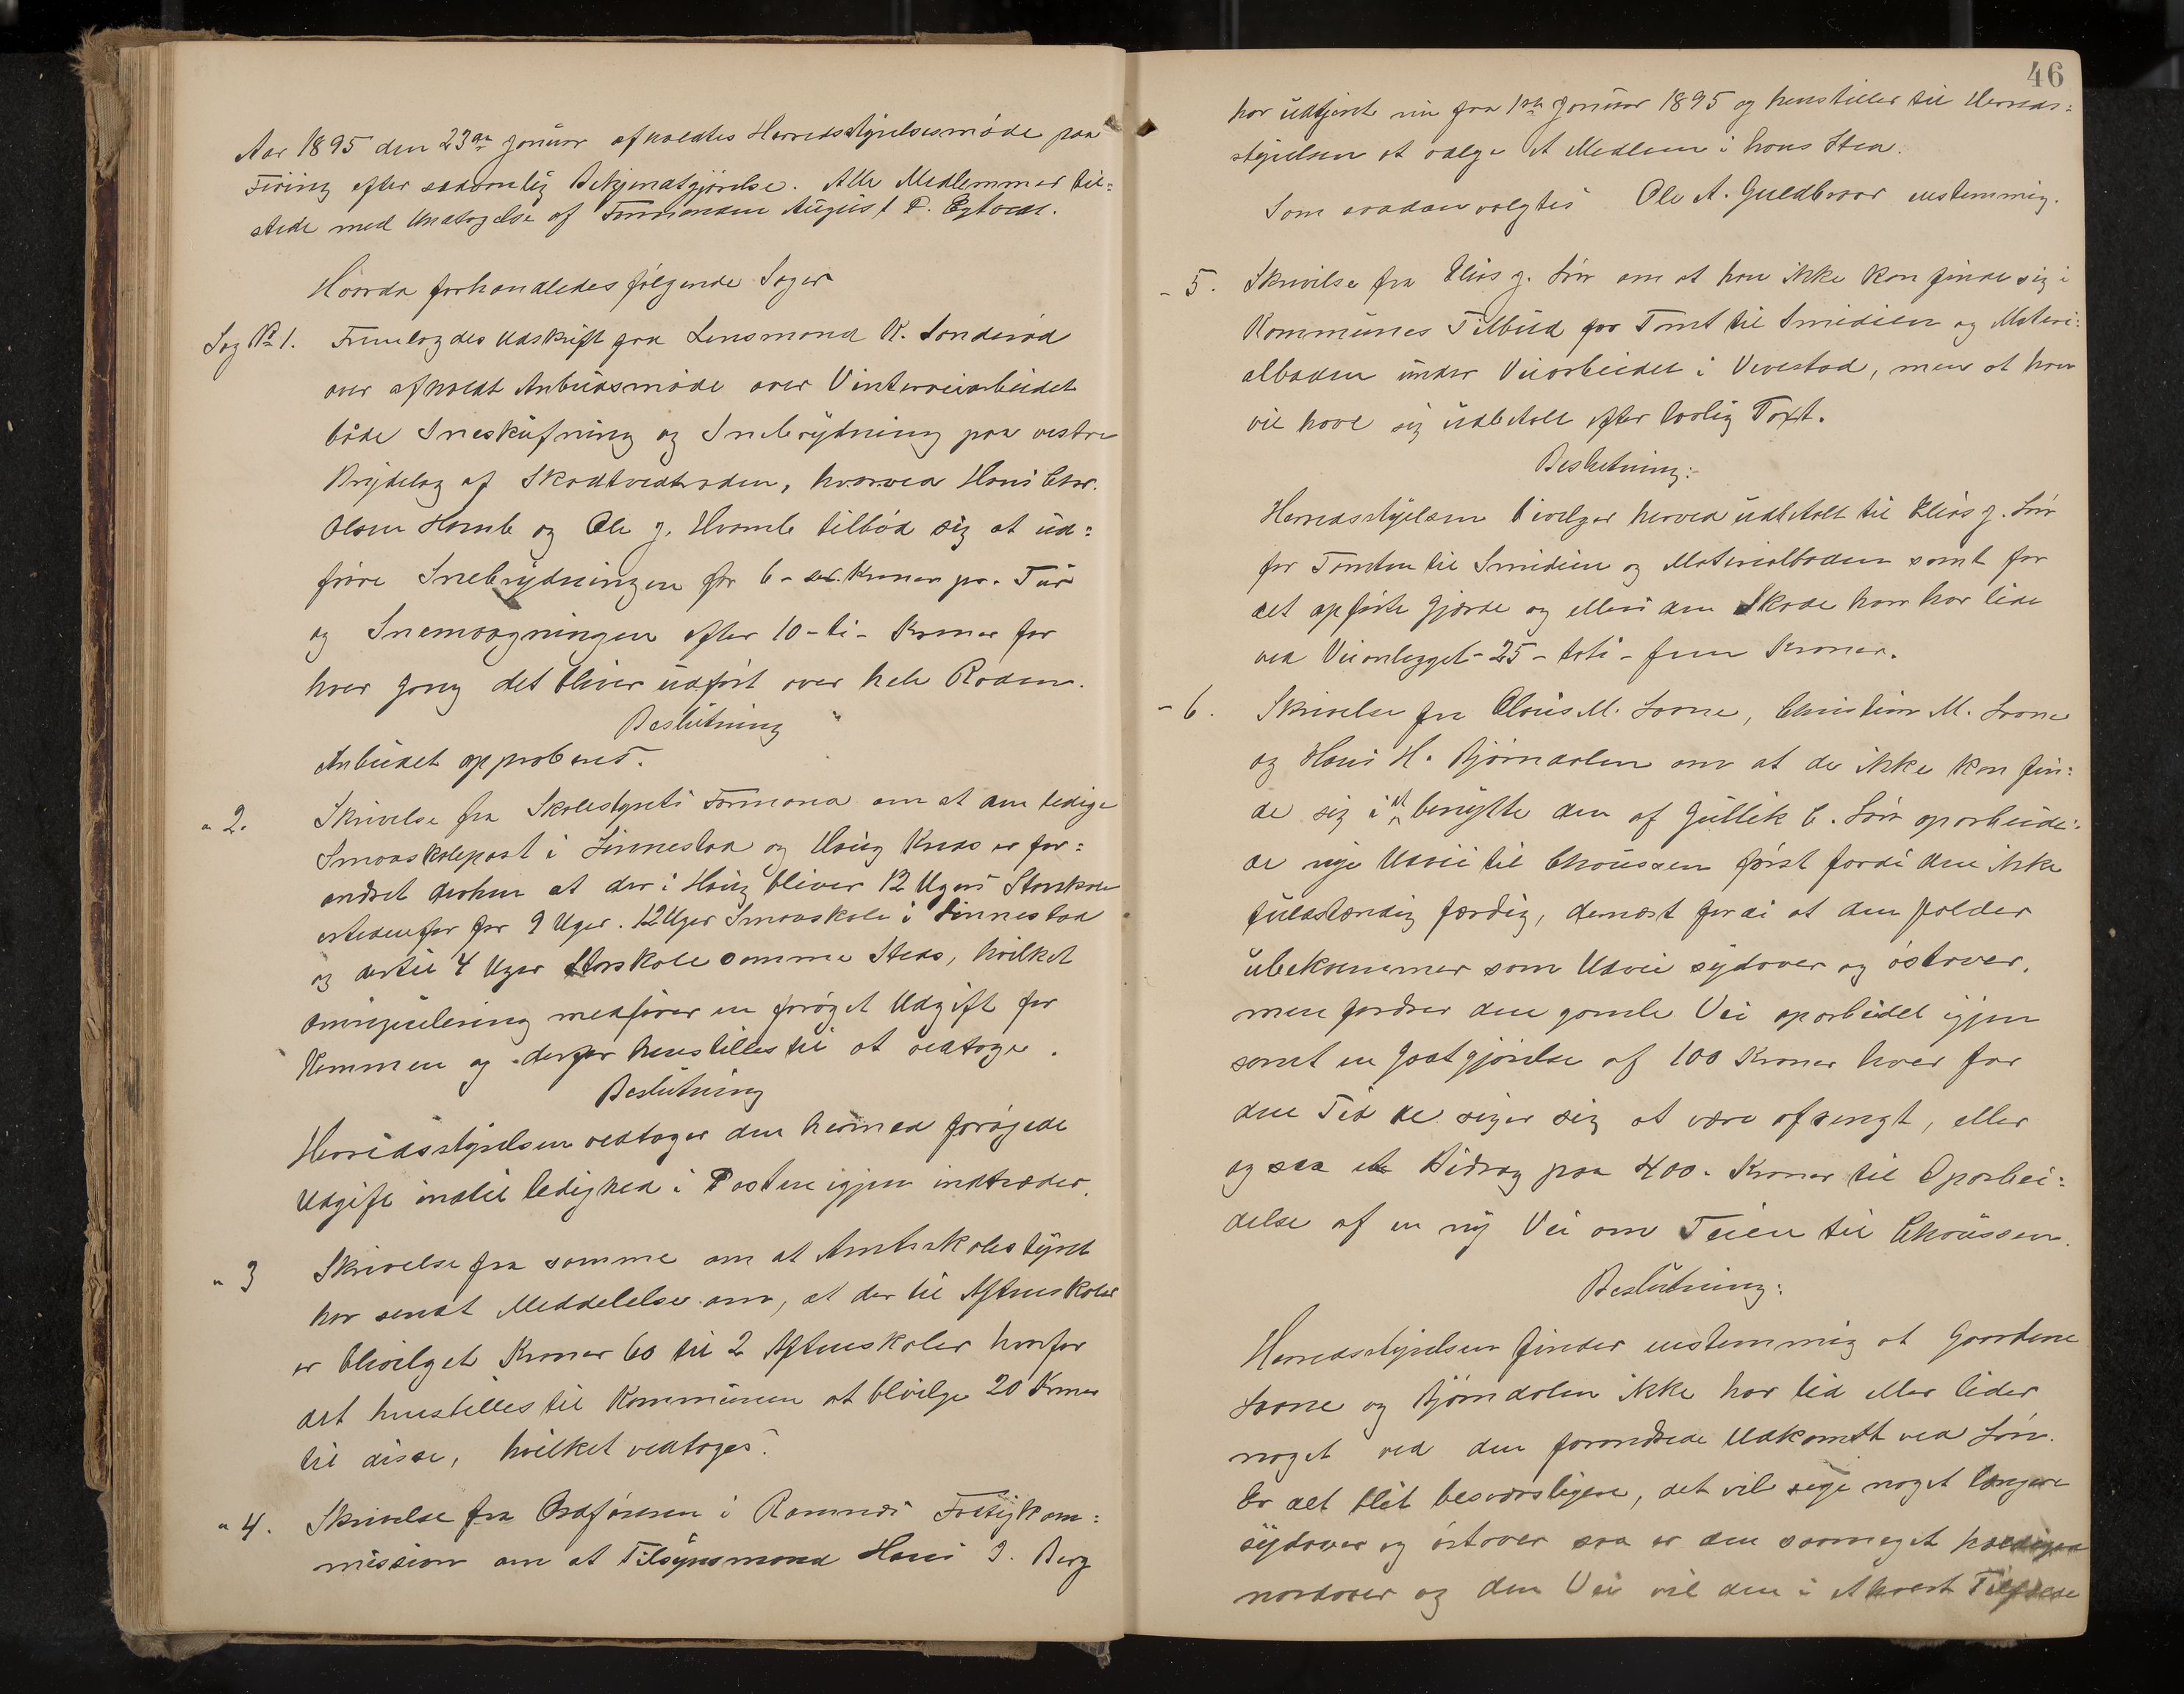 Aar 1895 den 23de Januar afholdtes Herredsstyrelsesmøde paa
Firing efter saadvanlig Bekjendtgjørelse. Alle Medlemmer til=
stede med Undtagelse af Formanden August P.
Hvorda forhandledes følgende Sager
Sag No 1. Fremlagdes Udskrift fra Lensmand K. Sanderød
over afholdt Anbudsmøde over Vinterveiarbeidet
både Sneskufning og Snebrydning paa vestre
Brydelag af Skadtvedtroden, hvorved Hans Chr.
Olsen Hornb og Ole J. Hvamb tilbød sig at ud=
føre Snebrydningen for 6 - sex Kroner pr. Tur
og Snemaagningen efter 10 - ti - Kroner for
hver Gang det bliver udført over hele Roden.
Beslutning
Anbudet approberes.
" 2. Skrivelse fra Skolestyrets Formand om at den ledige
Smaaskolepost i Linnestad og Haug Kreds er for=
andret derhen at der i Haug bliver 12 Ugers Storskole
istedenfor for 9 Uger. 12 Uger Smaaskole i Linnestad
og dertil 4 Uger Storskole samme Steds, hvilket
Omregulering medfører en forøget Udgift for
Kommen og derfor henstilles til at vedtage.
Beslutning
Herredsstyrelsen vedtager den hermed forøgede
Udgift indtil ledighed i Posten igjen indtræder.
" 3 Skrivelse fra samme om at Amtsskolestyret
har sendt Meddelelse om, at der til Aftenskoler
er bevilget Kroner 60 til 2 Aftenskoler hvorfor
det henstilles til Kommunen at bevilge 20 Kroner
til disse, hvilket vedtoges.
" 4. Skrivelse fra Ordføreren i Ramnes Fattigkom=
mission om at Tilsynsmand Hans I. Berg
46
har udtjent nu fra 1ste Januar 1895 og henstiller til Herreds=
styrelsen at vælge et Medlem i hans Sted.
Som saadan valgtes Ole A. Guldbraar enstemmig.
- 5. Skrivelse fra Elias J. Lør om at han ikke kan finde sig i
Kommunes Tilbud for Tomt til Smedien og Materi=
alboden under Veiarbeidet i Vivestad, men at han
vil have sig udbetalt efter lovlig Taxt.
Beslutning:
Herredsstyrelsen bevilger herved udbetalt til Elias J. Lør
for Tomten til Smidien og Materialboden samt for
det opførte Gjærde og ellers den Skade han har lidt
ved Veianlægget - 25 - toti - fem Kroner.
- 6. Skrivelse fra Olaus M. Aarne, Christian M. Aarne
og Hans H. Bjørndalen om at de ikke kan fin=
de sig i at benytte den af Gullik C. Lør oparbeide=
de nye Udvei til Chausseen først fordi den ikke
fuldstændig færdig, dernæst fordi at den falder
ubekvemmer som Udvei sydover og østover,
men fordrer den gamle Vei oparbeidet igjen
samt en Godtgjørelse af 100 Kroner hver for
den Tid de siger sig at være afstengt, eller
og saa et Bidrag paa 400 - Kroner til Oparbei=
delse af en ny Vei om Teien til Chausseen.
Beslutning:
Herredsstyrelsen finder enstemmig at Gaardene
Aarne og Bjørndalen ikke har lid eller lider
noget ved den forandrede Udkomst ved Lør.
Er det blit besværligere, det vil sige noget længere
sydover og østover saa er den saameget heldigere
nordover og den Vei vil den i ethvert Tilfælde